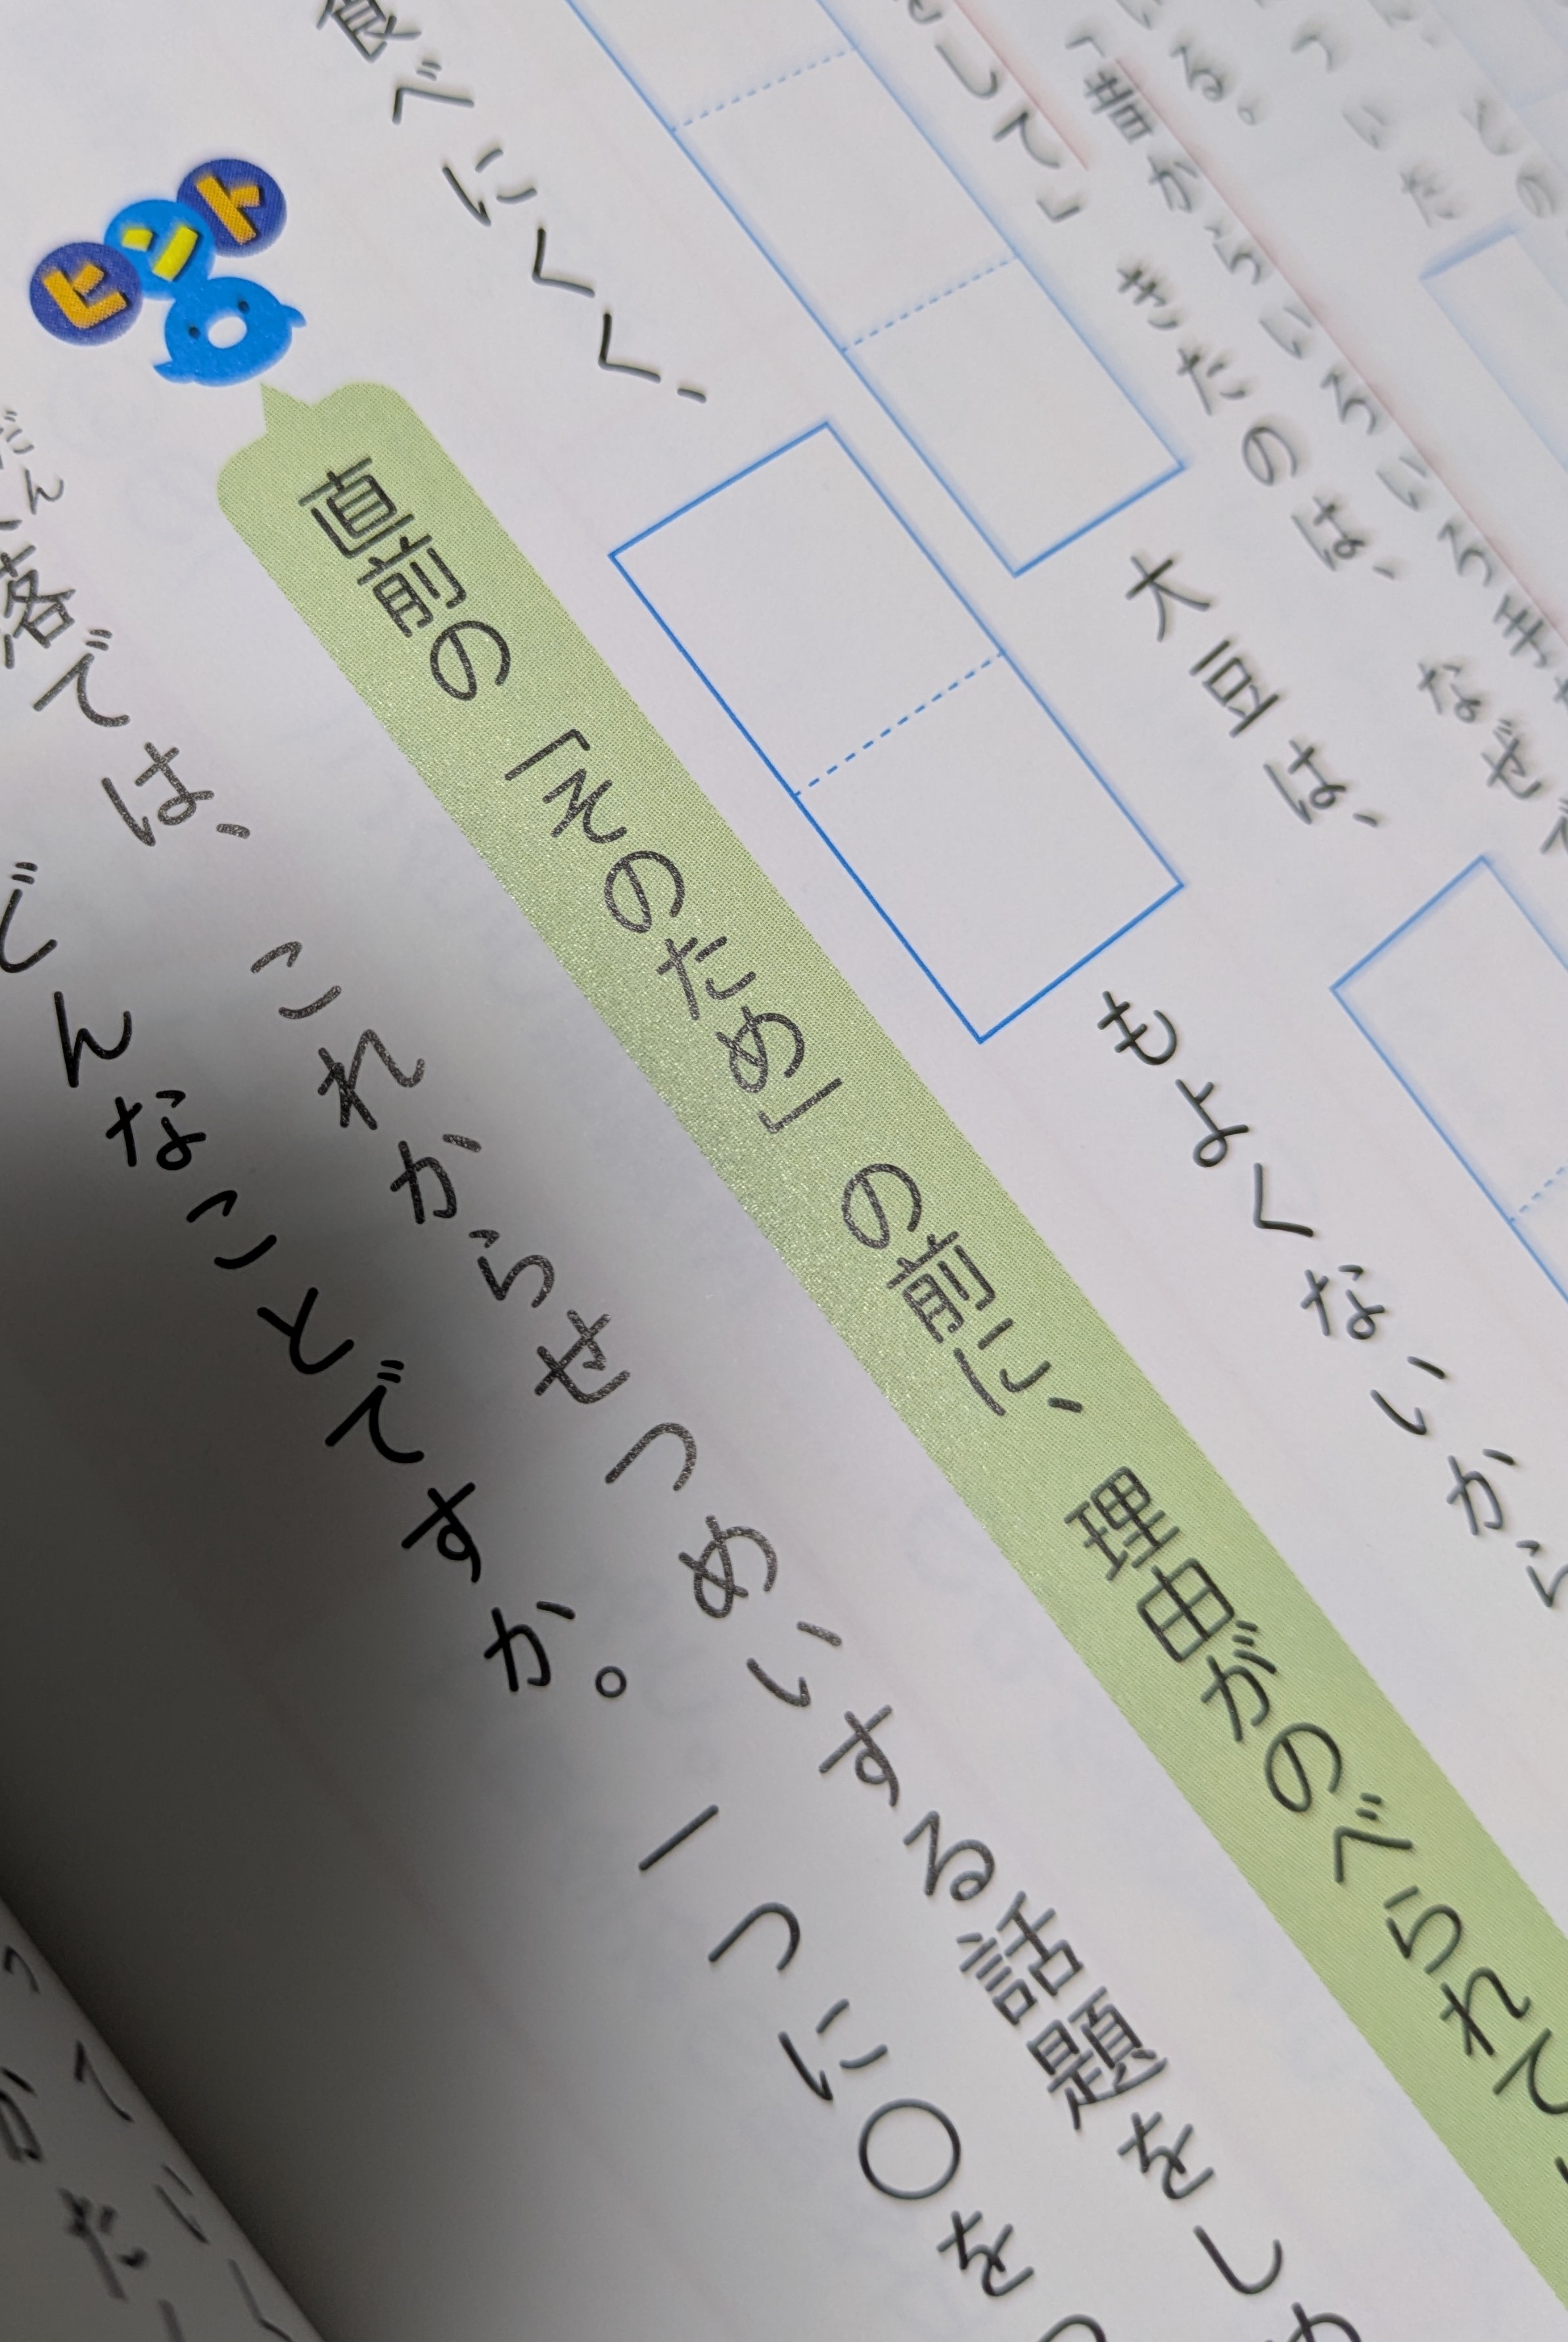 ついた
いる。
「昔からいろいろ手
をして」きたのは、なぜで
大豆は、
食べにくく、
もよくないから
ヒント
直前の「そのため」の前に、理由がのべられて
だん
落では、これからせつめいする話題をし
どんなことですか。一つに〇を